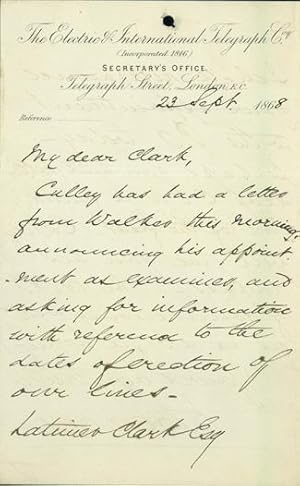 The Electric & International Telegraph Co.
(Incorporated 1846.)
SECRETARY'S OFFICE.
Telegraph Street, London, E.C.
23 Sept 1868
Reference
My dear Clark,
Culley has had a letter
from Walker this morning,
announcing his appoint
-ment as examiner, and
asking for information
with reference to the
dates of erection of
our lines -
Latimer Clark Esq